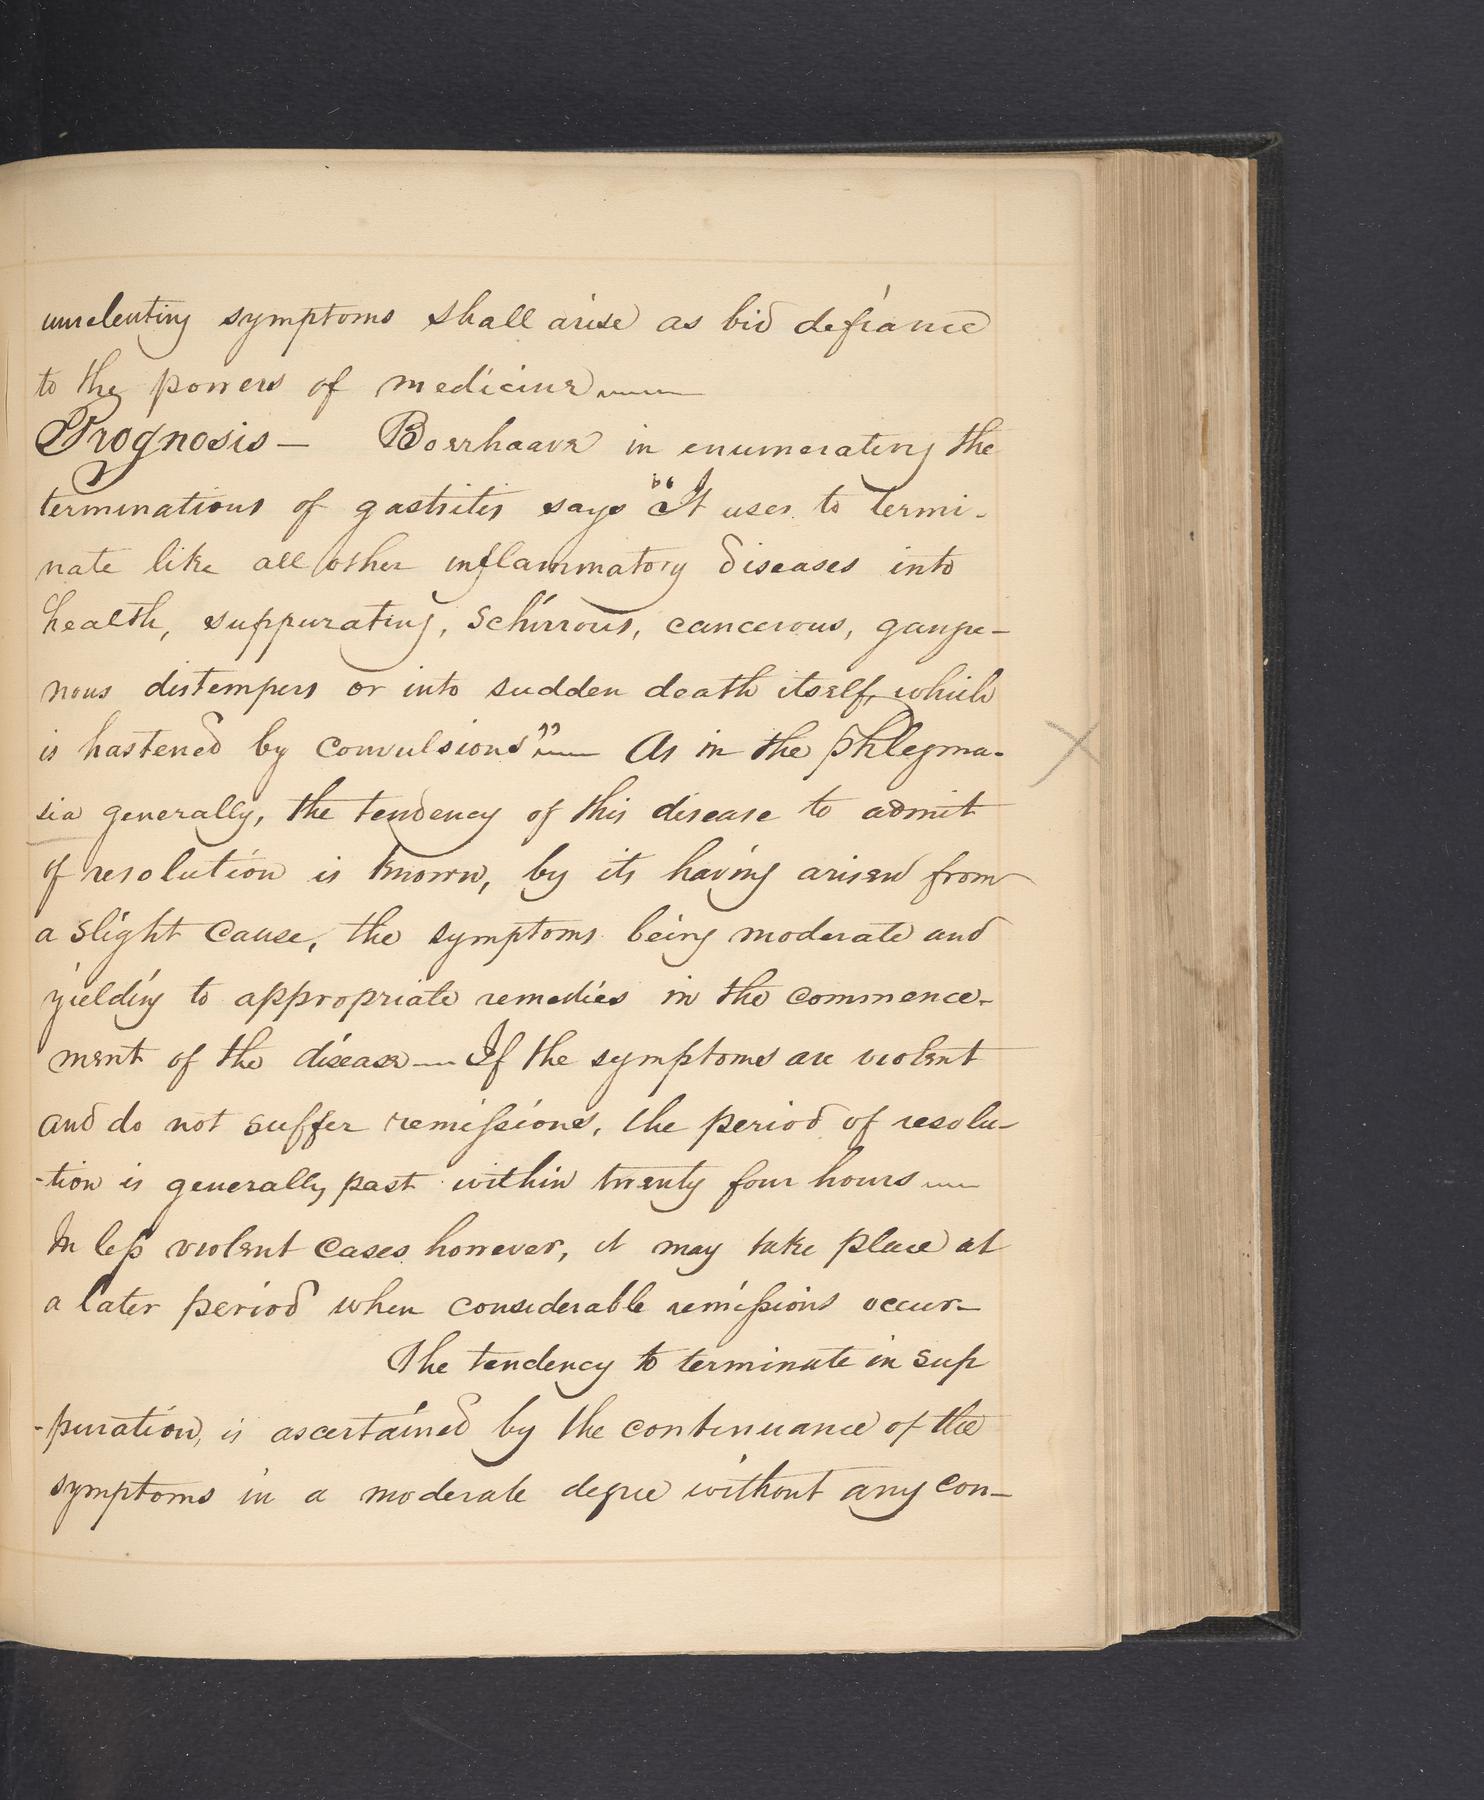 unrelenting symptoms shall arise as bid defiance
to the powers of medicine
Prognosis — Boerhaave in enumerating the
terminations of gastritis says "It uses to termi-
nate like all other inflammatory diseases into
health, suppurating, schirrous, cancerous, gangre-
nous distempers or into sudden death itself, which
is hastened by convulsions" — As in the phlegma-
sia generally, the tendency of this disease to admit
of resolution is known, by its having arisen from
a slight cause, the symptoms being moderate and
yielding to appropriate remedies in the commence-
ment of the disease — If the symptoms are violent
and do not suffer remissions, the period of resolu-
-tion is generally past within twenty four hours —
In less violent cases however, it may take place at
a later period when considerable remissions occur —
The tendency to terminate in sup
-puration, is ascertained by the continuance of the
symptoms in a moderate degree without any con-